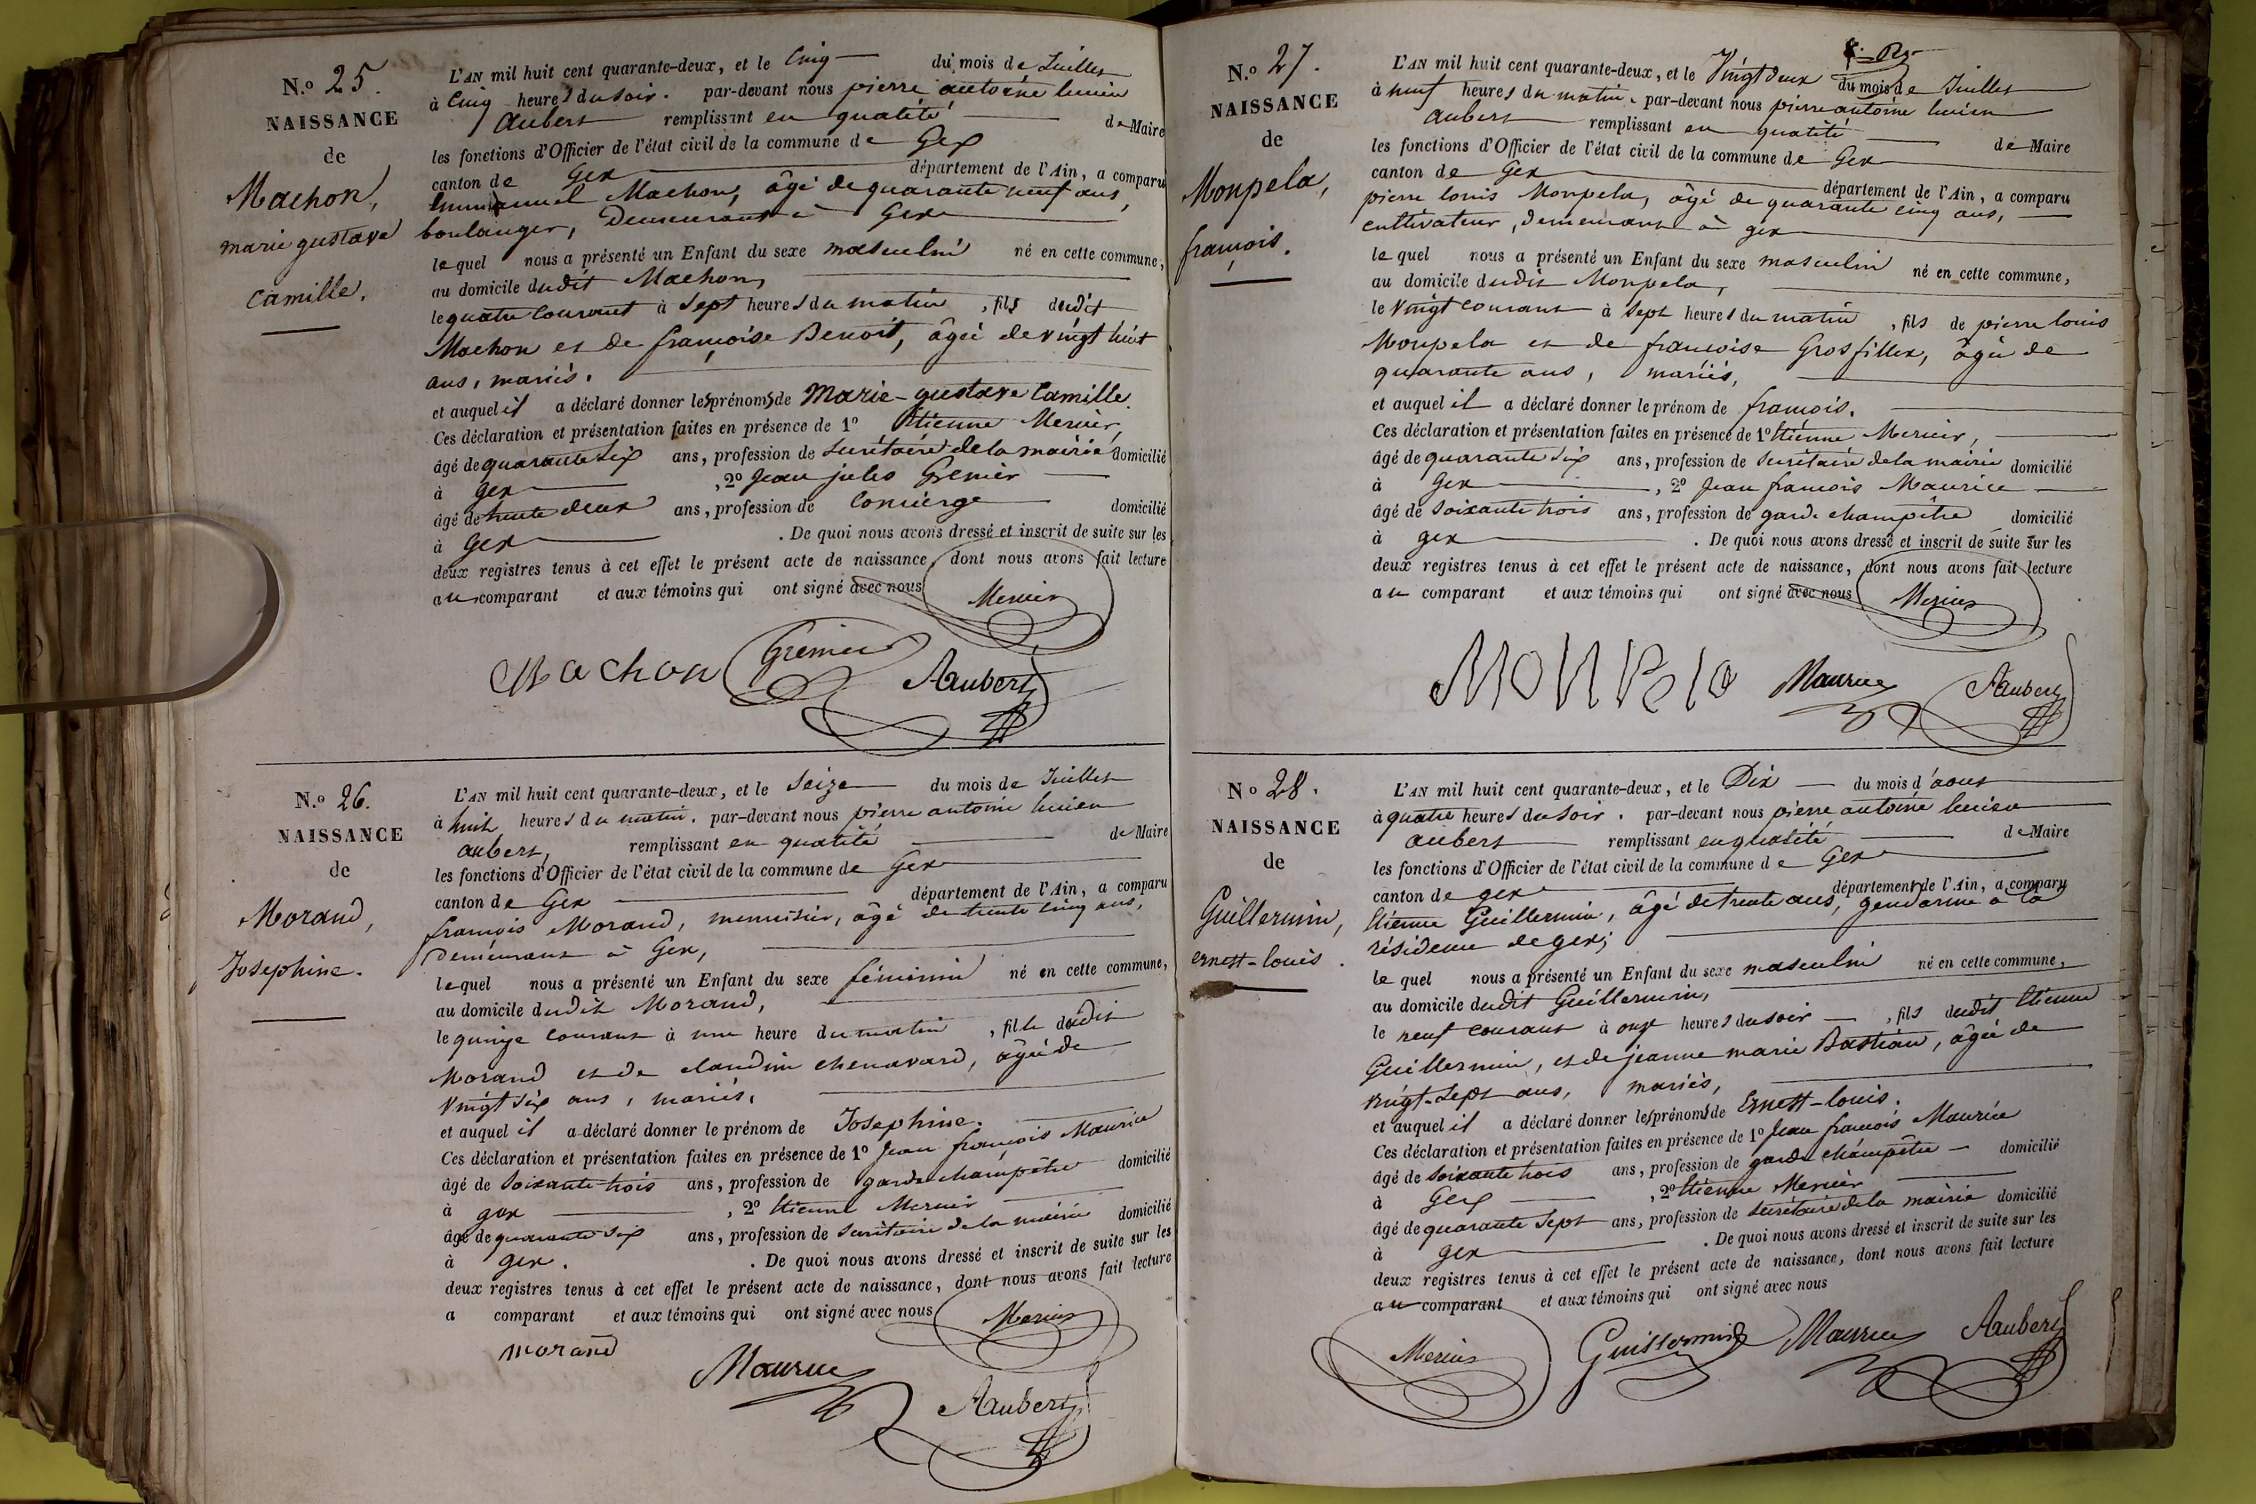 N.º 25.
NAISSANCE
de
Machon,
marie gustave
Camille.
L'AN mil huit cent quarante-deux, et le Cinq du mois de Juillet
à Cinq heures du soir. par-devant nous pierre antoine lucien
Aubert remplissant en qualité de Maire
les fonctions d'Officier de l'état civil de la commune de Gex
canton de Gex département de l'Ain, a comparu
Emmanuel Machon, âgé de quarante neuf ans,
boulanger, Demeurant à Gex
lequel nous a présenté un Enfant du sexe masculin né en cette commune,
au domicile dudit Machon,
le quatre Courant à Sept heures du matin, fils dudit
Machon et de françoise Benoit, âgée de vingt huit
ans, mariés.
et auquel il a déclaré donner les prénoms de Marie-gustave Camille.
Ces déclaration et présentation faites en présence de 1º Etienne Mercier,
âgé de quarante Six ans, profession de Secrétaire de la mairie domicilié
à Gex, 2º Jean jules Grenier
âgé de trente deux ans, profession de Concierge domicilié
à Gex. De quoi nous avons dressé et inscrit de suite sur les
deux registres tenus à cet effet le présent acte de naissance, dont nous avons fait lecture
au comparant et aux témoins qui ont signé avec nous
Mercier
Machon Grenier Aubert
N.º 26.
NAISSANCE
de
Morand,
Josephine.
L'AN mil huit cent quarante-deux, et le Seize du mois de Juillet
à huit heures du matin. par-devant nous pierre antoine lucien
aubert, remplissant en qualité de Maire
les fonctions d'Officier de l'état civil de la commune de Gex
canton de Gex département de l'Ain, a comparu
françois Morand, menuisier, âgé de trente cinq ans,
Demeurant à Gex,
lequel nous a présenté un Enfant du sexe féminin né en cette commune,
au domicile dudit Morand,
le quinze Courant à une heure du matin, fille dudit
Morand et de claudine chenavard, âgée de
vingt six ans, mariés.
et auquel il a déclaré donner le prénom de Josephine.
Ces déclaration et présentation faites en présence de 1º Jean françois Maurice
âgé de Soixante trois ans, profession de garde champêtre domicilié
à gex, 2º Etienne Mercier
âgé de quarante Six ans, profession de Secrétaire de la mairie domicilié
à gex. De quoi nous avons dressé et inscrit de suite sur les
deux registres tenus à cet effet le présent acte de naissance, dont nous avons fait lecture
a comparant et aux témoins qui ont signé avec nous
Mercier
morand
Maurice
Aubert
N.º 27.
NAISSANCE
de
Monpela,
françois.
L'AN mil huit cent quarante-deux, et le Vingt deux du mois de Juillet
à neuf heures du matin. par-devant nous pierre antoine lucien
Aubert remplissant en qualité de Maire
les fonctions d'Officier de l'état civil de la commune de Gex
canton de Gex département de l'Ain, a comparu
pierre louis Monpela, âgé de quarante cinq ans,
cultivateur, demeurant à gex
lequel nous a présenté un Enfant du sexe masculin né en cette commune,
au domicile dudit Monpela,
le Vingt courant à Sept heures du matin, fils de pierre louis
Monpela et de françoise Grosfillex, âgée de
quarante ans, mariés,
et auquel il a déclaré donner le prénom de françois.
Ces déclaration et présentation faites en présence de 1º Etienne Mercier,
âgé de quarante Six ans, profession de Secrétaire de la mairie domicilié
à Gex, 2º Jean françois Maurice
âgé de Soixante trois ans, profession de garde champêtre domicilié
à gex. De quoi nous avons dressé et inscrit de suite sur les
deux registres tenus à cet effet le présent acte de naissance, dont nous avons fait lecture
au comparant et aux témoins qui ont signé avec nous
Mercier
MONPelo Maurice Aubert
Nº 28.
NAISSANCE
de
Guillermin,
ernest-louis.
L'AN mil huit cent quarante-deux, et le Dix du mois d'aout
à quatre heures du soir. par-devant nous pierre antoine lucien
aubert remplissant en qualité de Maire
les fonctions d'Officier de l'état civil de la commune de Gex
canton de gex département de l'Ain, a comparu
Etienne Guillermin, âgé de trente ans, gendarme à la
résidence de gex;
lequel nous a présenté un Enfant du sexe masculin né en cette commune,
au domicile dudit Guillermin,
le neuf courant à onze heures du soir, fils dudit Etienne
Guillermin, et de jeanne marie Bastian, âgée de
vingt-Sept ans, mariés,
et auquel il a déclaré donner les prénoms de Ernest-louis.
Ces déclaration et présentation faites en présence de 1º Jean françois Maurice
âgé de Soixante trois ans, profession de garde champêtre domicilié
à Gex, 2º Etienne Mercier
âgé de quarante Sept ans, profession de Secrétaire de la mairie domicilié
à gex. De quoi nous avons dressé et inscrit de suite sur les
deux registres tenus à cet effet le présent acte de naissance, dont nous avons fait lecture
au comparant et aux témoins qui ont signé avec nous
Mercier Guillermin Maurice Aubert